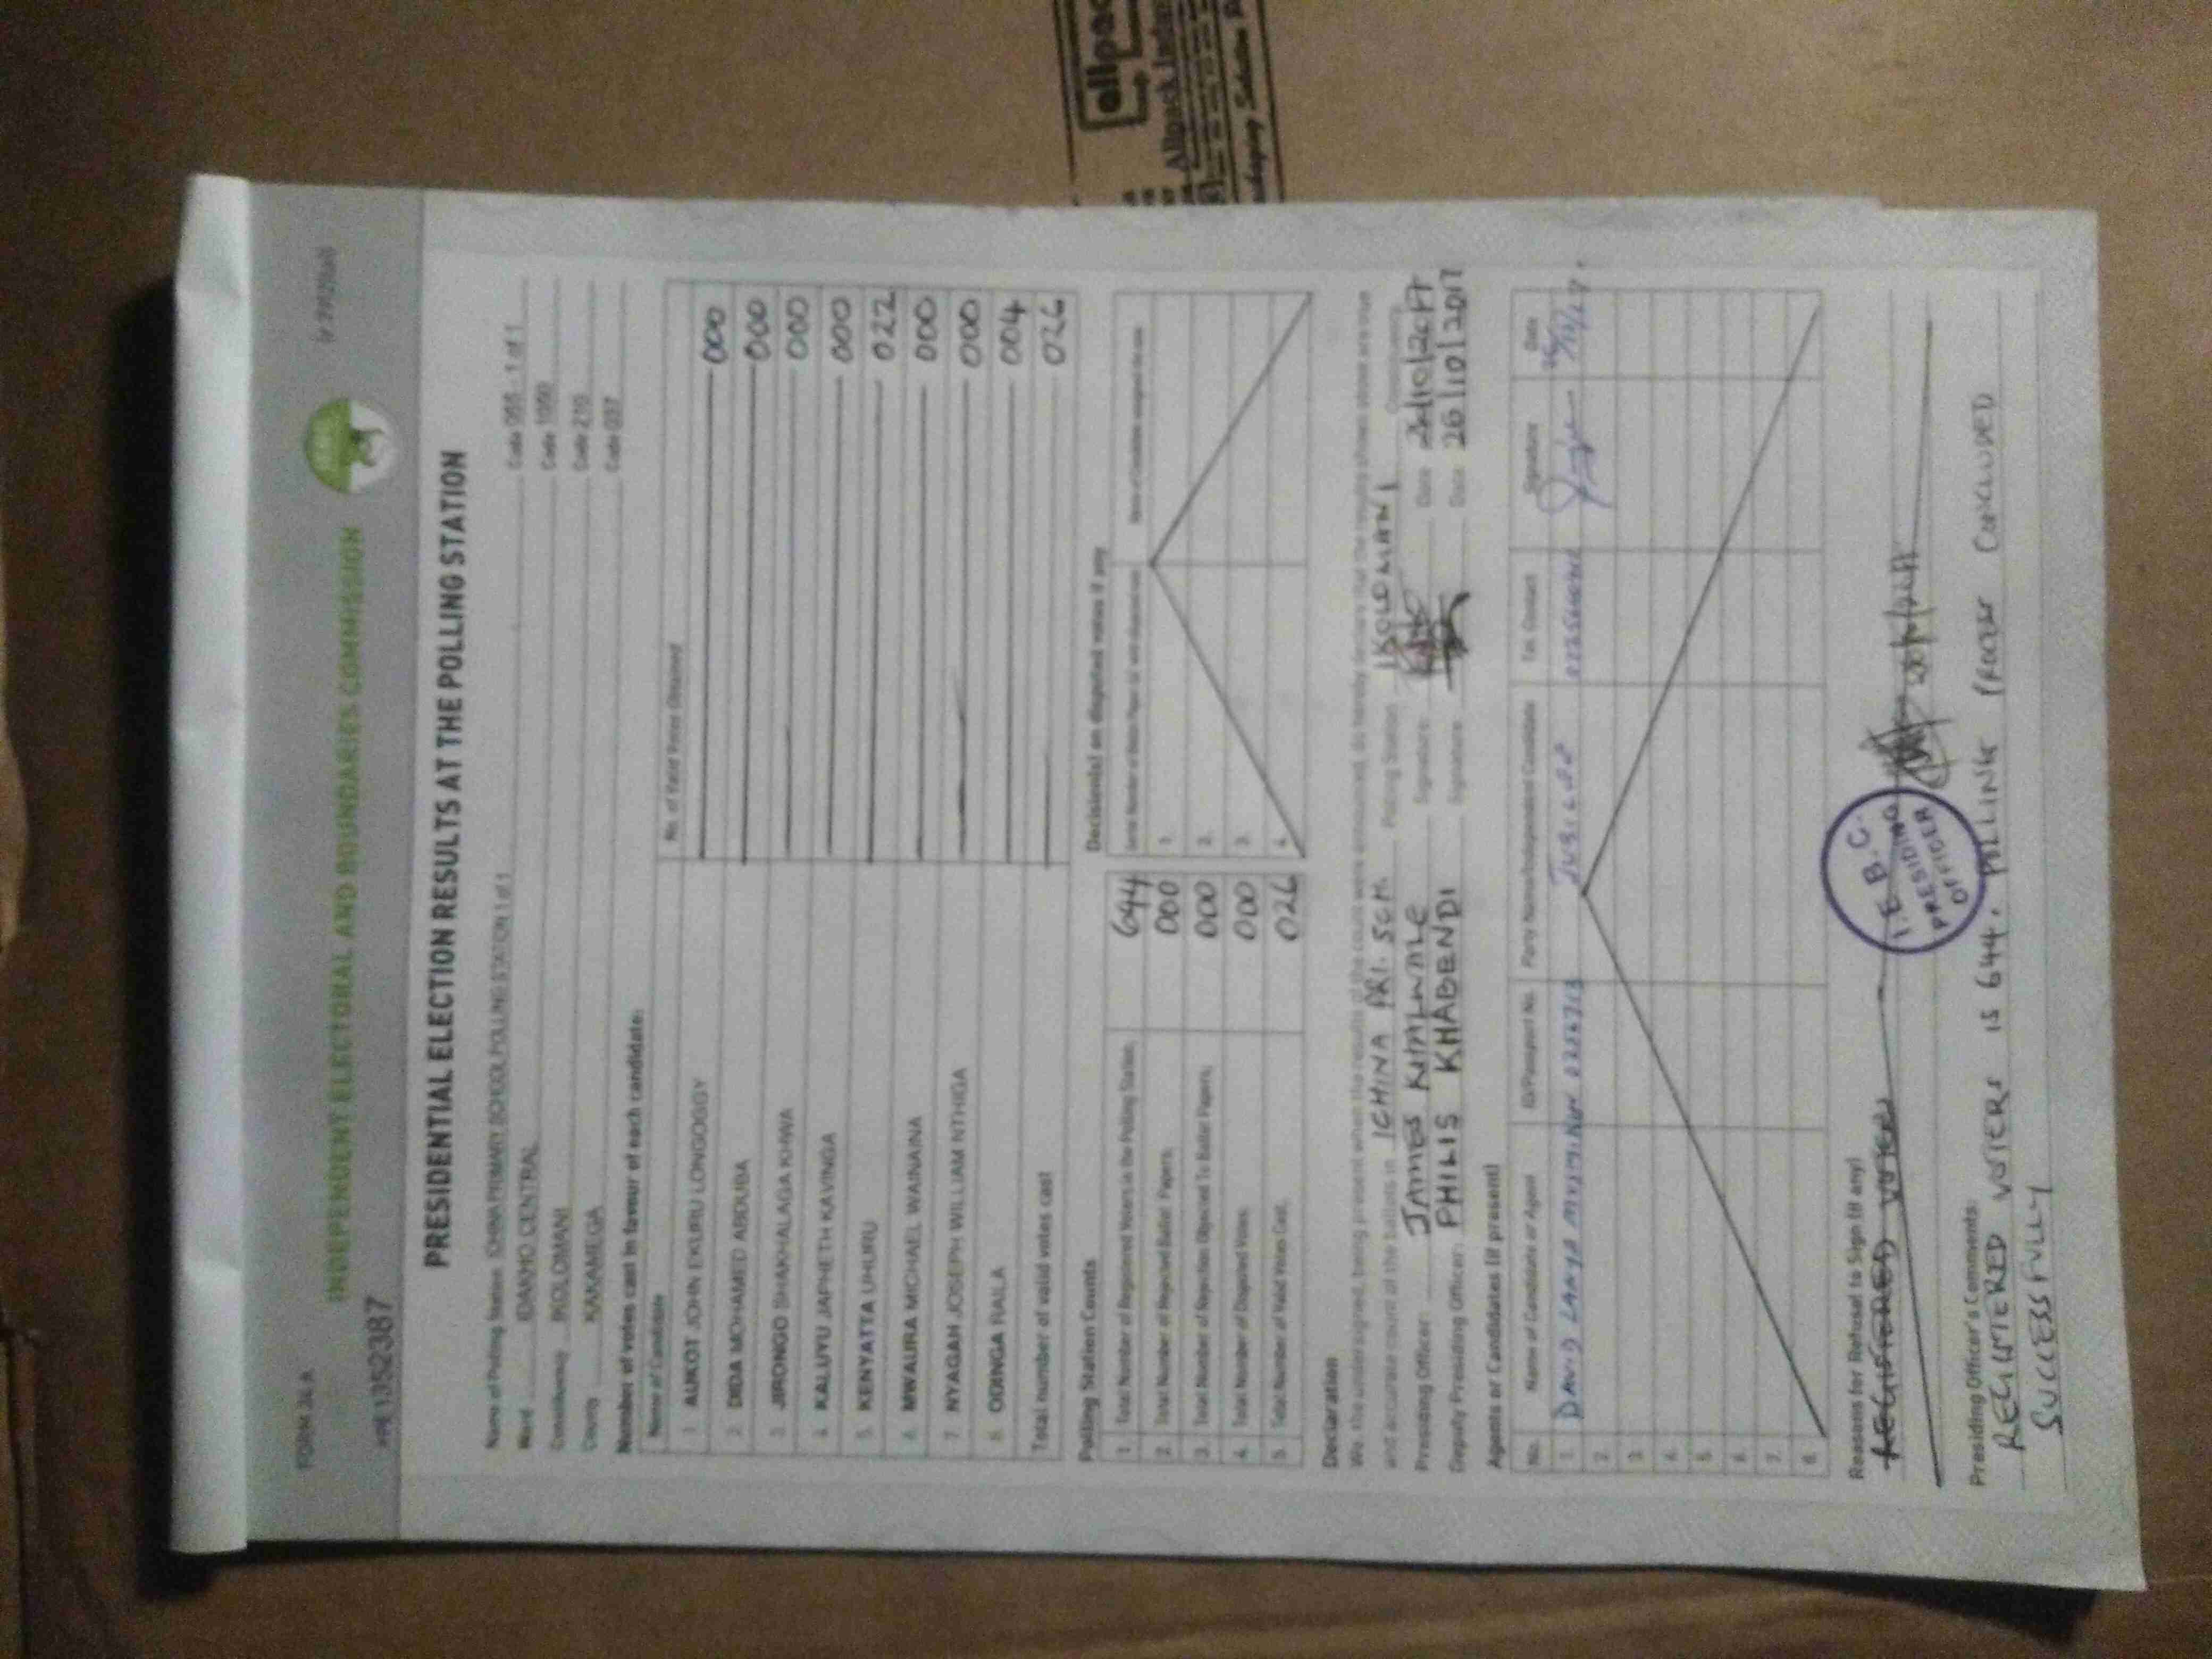 FORM 34 A
INDEPENDENT ELECTORAL AND BOUNDARIES COMMISSION
PRESIDENTIAL ELECTION RESULTS AT THE POLLING STATION
Name of Polling Station ICHINA PRIMARY SCHOOL POLLING STATION 1 of 1 Code 055 - 1 of 1
Ward IDAKHO CENTRAL Code 1050
Constituency IKOLOMANI Code 210
County KAKAMEGA Code 037
Number of votes cast in favour of each candidate:
Name of Candidate No. of Valid Votes Obtained
1. AUKOT JOHN EKURU LONGOGGY 000
2. DIDA MOHAMED ABDUBA 000
3. JIRONGO SHAKHALAGA KHWA 000
4. KALUYU JAPHETH KAVINGA 000
5. KENYATTA UHURU 022
6. MWAURA MICHAEL WAINAINA 000
7. NYAGAH JOSEPH WILLIAM NTHIGA 000
8. ODINGA RAILA 004
Total number of valid votes cast 026
Polling Station Counts
1. Total Number of Registered Voters in the Polling Station 644
2. Total Number of Rejected Ballot Papers 000
3. Total Number of Rejection Objected To Ballot Papers 000
4. Total Number of Disputed Votes 000
5. Total Number of Valid Votes Cast 026
Decision(s) on disputed votes if any
1.
2.
3.
4.
Declaration
We, the undersigned, being present when the results of the count were announced, do hereby declare that the results shown above are true
and accurate count of the ballots in ICHINA PRI. SCH. Polling Station IKOLOMANI Constituency
Presiding Officer: JAMES Signature: Date
Deputy Presiding Officer: PHILIS KHABENDI Signature Date 26/10/2017
Agents or Candidates (if present)
No. Name of Candidate or Agent ID/Passport No. Party Name/Independent Candidate Tel. Contact Signature Date
1. DAVID JUBILEE
2.
3.
4.
5.
6.
7.
8.
Reasons for Refusal to Sign (if any)
REGISTERED VOTERS
I.E.B.C.
PRESIDING
OFFICER
Presiding Officer's Comments:
REGISTERED VOTERS IS 644. POLLING PROCESS CONCLUDED
SUCCESSFULLY
allpack
Allpack